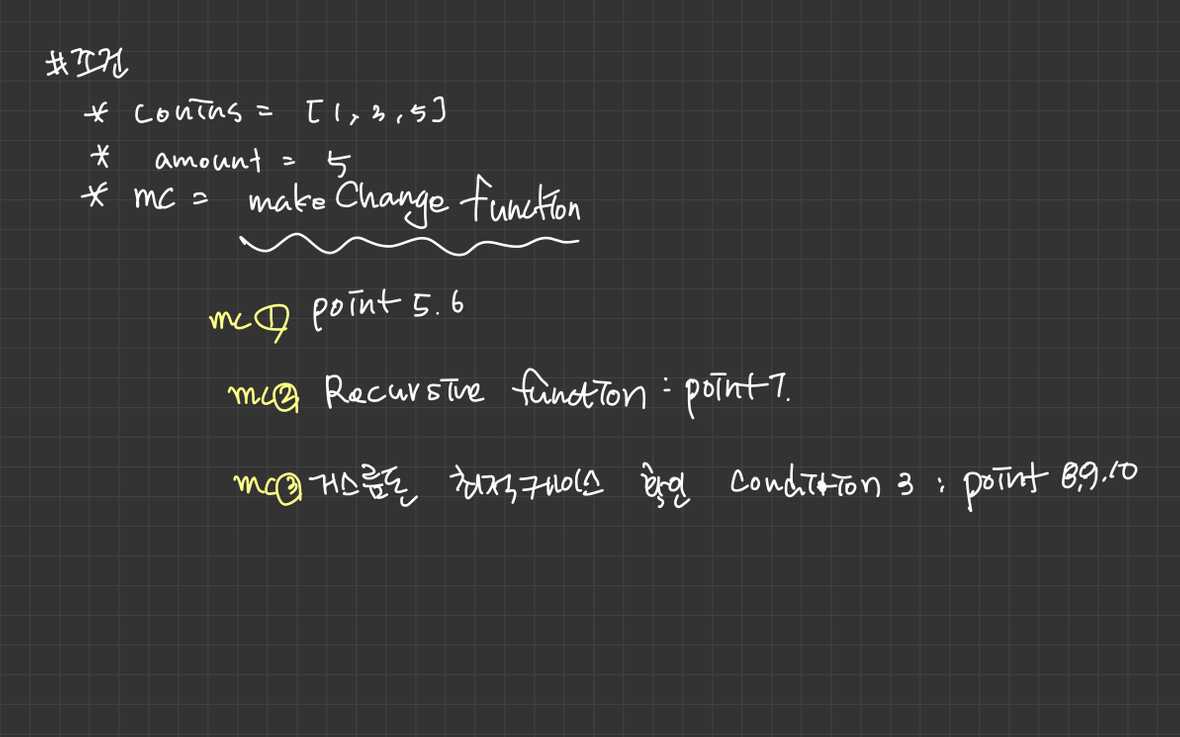 #조건
* conins = [1, 3, 5]
* amount = 5
* mc = make Change function
mc① point 5.6
mc② Recursive function : point 7.
mc③ 거스름돈 최적케이스 확인 condition 3 : point 8.9.10